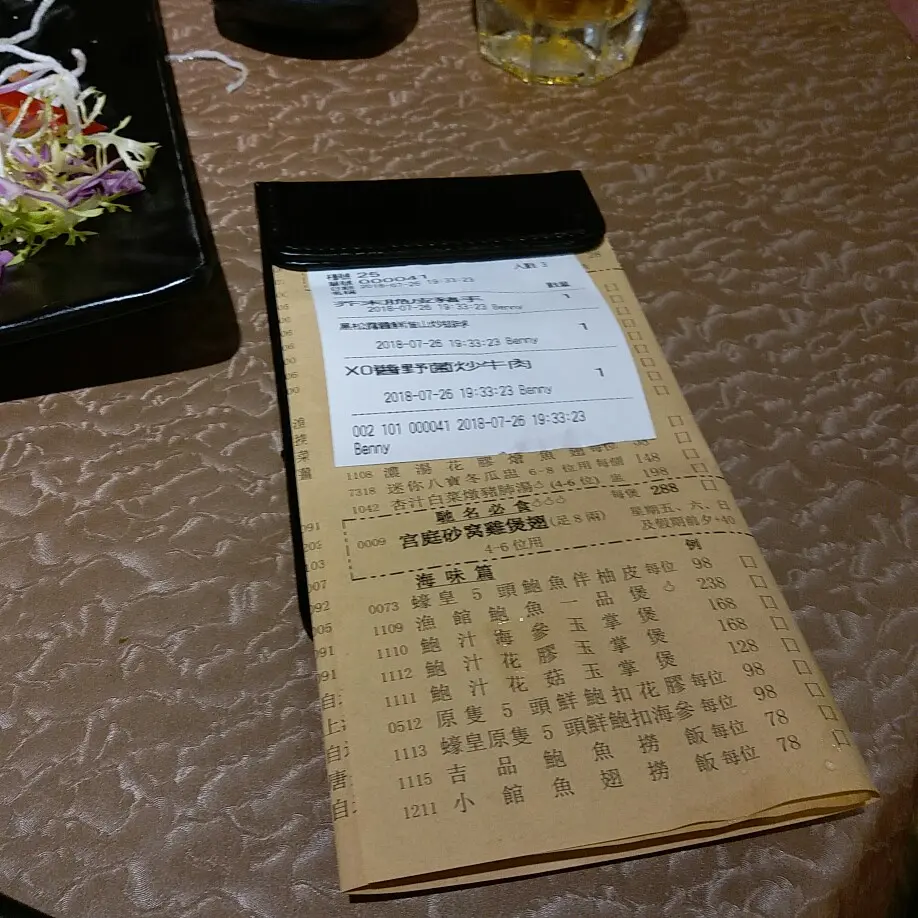 檯號 25
人數 3
單號 000041
日期 2018-07-26 19:33:23
名稱
數量
芥末脆皮豬手 1
2018-07-26 19:33:23 Benny
1
2018-07-26 19:33:23 Benny
XO醬野菌炒牛肉
1
2018-07-26 19:33:23 Benny
002 101 000041 2018-07-26 19:33:23
Benny
1108 濃湯花膠燴魚翅 每位
7318 迷你八寶冬瓜盅 6-8 位用 每個 148 □
1042 杏汁白菜燉豬肺湯 (4-6 位) 盅 198 □
馳名必食
0009 宮庭砂窩雞煲翅 (足 8 兩) 每煲 288 □
4-6 位用
星期五、六、日
及假期前夕+40
海味篇
例
0073 蠔皇 5 頭鮑魚伴柚皮 每位 98 □
1109 漁館鮑魚一品煲 238 □
1110 鮑汁海參玉掌煲 168 □
1112 鮑汁花膠玉掌煲 168 □
1111 鮑汁花菇玉掌煲 128 □
0512 原隻 5 頭鮮鮑扣花膠 每位 98 □
1113 蠔皇原隻 5 頭鮮鮑扣海參 每位 98 □
1115 吉品鮑魚撈飯 每位 78 □
1211 小館魚翅撈飯 每位 78 □